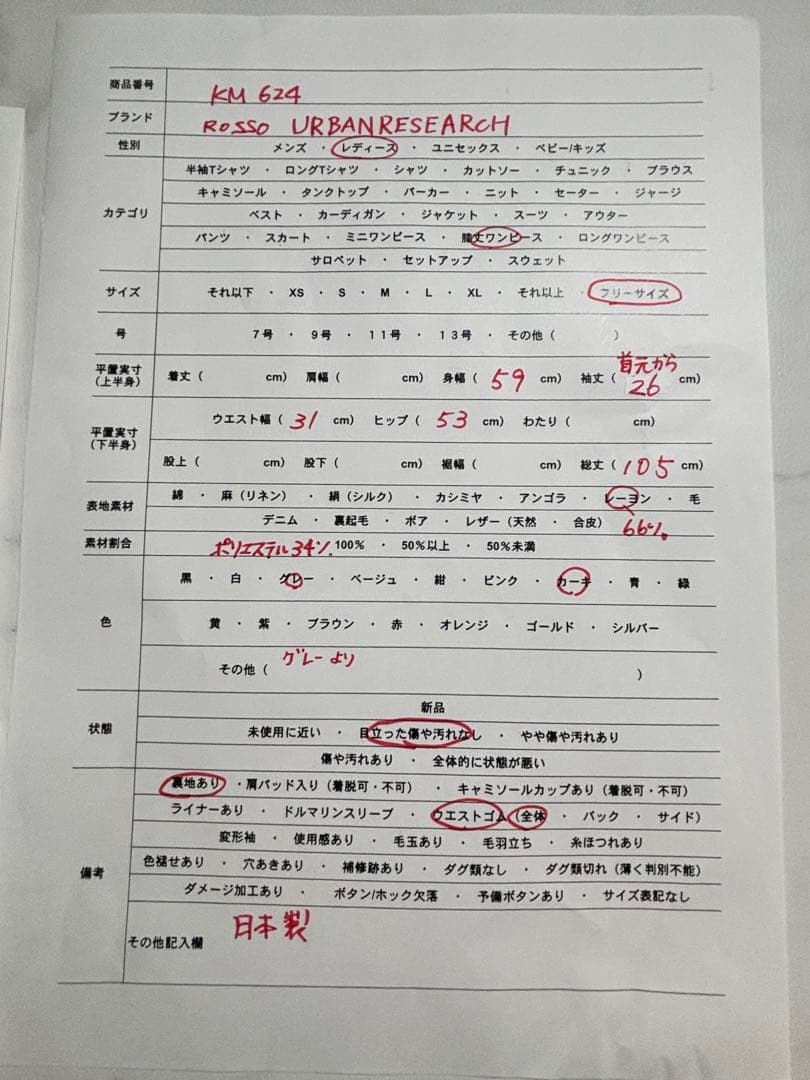 商品番号 KM 624
ブランド ROSSO URBANRESEARCH
性別 メンズ ・ レディース ・ ユニセックス ・ ベビー/キッズ
半袖Tシャツ ・ ロングTシャツ ・ シャツ ・ カットソー ・ チュニック ・ ブラウス
キャミソール ・ タンクトップ ・ パーカー ・ ニット ・ セーター ・ ジャージ
カテゴリ ベスト ・ カーディガン ・ ジャケット ・ スーツ ・ アウター
パンツ ・ スカート ・ ミニワンピース ・ 膝丈ワンピース ・ ロングワンピース
サロペット ・ セットアップ ・ スウェット
サイズ それ以下 ・ XS ・ S ・ M ・ L ・ XL ・ それ以上 ・ フリーサイズ
号 7号 ・ 9号 ・ 11号 ・ 13号 ・ その他 ( )
平置実寸 (上半身) 着丈 ( cm) 肩幅 ( cm) 身幅 ( 59 cm) 袖丈 ( 首元から 26 cm)
平置実寸 (下半身) ウエスト幅 ( 31 cm) ヒップ ( 53 cm) わたり ( cm)
股上 ( cm) 股下 ( cm) 裾幅 ( cm) 総丈 ( 105 cm)
表地素材 綿 ・ 麻 (リネン) ・ 絹 (シルク) ・ カシミヤ ・ アンゴラ ・ レーヨン ・ 毛
デニム ・ 裏起毛 ・ ボア ・ レザー (天然 ・ 合皮) 66%
素材割合 ポリエステル34% 100% ・ 50%以上 ・ 50%未満
黒 ・ 白 ・ グレー ・ ベージュ ・ 紺 ・ ピンク ・ カーキ ・ 青 ・ 緑
色 黄 ・ 紫 ・ ブラウン ・ 赤 ・ オレンジ ・ ゴールド ・ シルバー
その他 ( グレーより )
新品
状態 未使用に近い ・ 目立った傷や汚れなし ・ やや傷や汚れあり
傷や汚れあり ・ 全体的に状態が悪い
裏地あり ・ 肩パッド入り (着脱可・不可) ・ キャミソールカップあり (着脱可・不可)
ライナーあり ・ ドルマリンスリーブ ・ ウエストゴム (全体 ・ バック ・ サイド)
変形袖 ・ 使用感あり ・ 毛玉あり ・ 毛羽立ち ・ 糸ほつれあり
備考 色褪せあり ・ 穴あきあり ・ 補修跡あり ・ ダグ類なし ・ ダグ類切れ (薄く判別不能)
ダメージ加工あり ・ ボタン/ホック欠落 ・ 予備ボタンあり ・ サイズ表記なし
その他記入欄 日本製